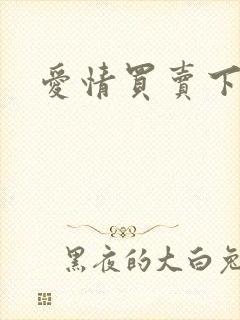 愛情買賣下
黑夜的大白兔